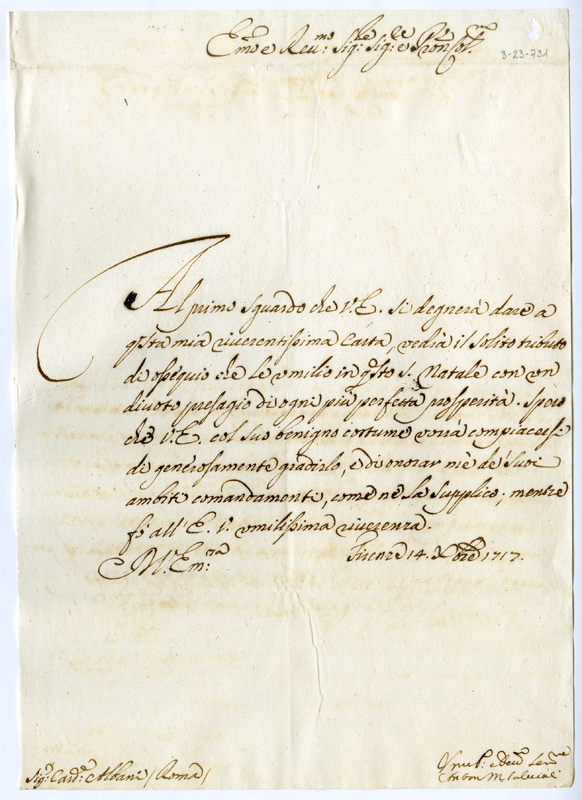 Em.o e Reu.mo Sig.r Sig.re e Pron Col.mo
3-23-731
Al primo sguardo che V.E. si degnerà dare a
q.sta mia riuerentissima Carta, vedrà il solito tributo
di ossequio che Le vmilio in q.sto S. Natale con vn
diuoto presagio di ogni più perfetta prosperità. Spero
che V.E. col suo benigno costume vorrà compiacersi
di generosamente gradirlo, e di onorar mè de' suoi
ambiti comandamenti, come ne La supplico; mentre
fò all'E.V. vmilissima riuerenza.
Firenze 14. Xbre 1717.
Sig.r Card.e Albani / Roma /